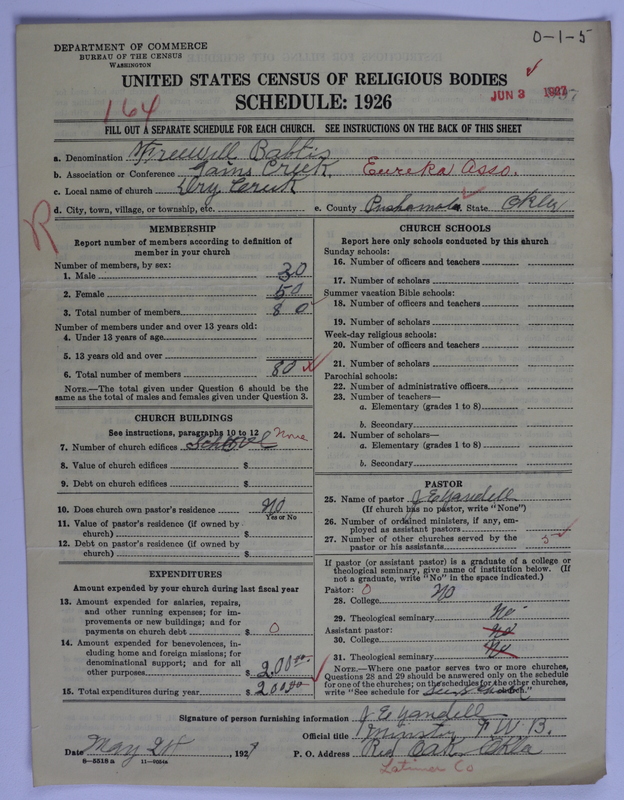 DEPARTMENT OF COMMERCE
BUREAU OF THE CENSUS
WASHINGTON
0-1-5
UNITED STATES CENSUS OF RELIGIOUS BODIES
SCHEDULE: 1926
JUN 3 1927
164
FILL OUT A SEPARATE SCHEDULE FOR EACH CHURCH. SEE INSTRUCTIONS ON THE BACK OF THIS SHEET
a. Denomination Freewill Babtis
b. Association or Conference Gains Creek Eureka Asso.
c. Local name of church Dry Creek
d. City, town, village, or township, etc.
e. County Pushamata State Okla
R
MEMBERSHIP
Report number of members according to definition of member in your church
Number of members, by sex:
1. Male 30
2. Female 50
3. Total number of members 80
Number of members under and over 13 years old:
4. Under 13 years of age
5. 13 years old and over
6. Total number of members 80
NOTE.—The total given under Question 6 should be the same as the total of males and females given under Question 3.
CHURCH BUILDINGS
See instructions, paragraphs 10 to 12
7. Number of church edifices School None
8. Value of church edifices $
9. Debt on church edifices $
10. Does church own pastor's residence No
Yes or No
11. Value of pastor's residence (if owned by church) $
12. Debt on pastor's residence (if owned by church) $
EXPENDITURES
Amount expended by your church during last fiscal year
13. Amount expended for salaries, repairs, and other running expenses; for improvements or new buildings; and for payments on church debt $ 0
14. Amount expended for benevolences, including home and foreign missions; for denominational support; and for all other purposes $ 200.00
15. Total expenditures during year $ 200.00
CHURCH SCHOOLS
Report here only schools conducted by this church
Sunday schools:
16. Number of officers and teachers
17. Number of scholars
Summer vacation Bible schools:
18. Number of officers and teachers
19. Number of scholars
Week-day religious schools:
20. Number of officers and teachers
21. Number of scholars
Parochial schools:
22. Number of administrative officers
23. Number of teachers—
a. Elementary (grades 1 to 8)
b. Secondary
24. Number of scholars—
a. Elementary (grades 1 to 8)
b. Secondary
PASTOR
25. Name of pastor J E Yandell
(If church has no pastor, write "None")
26. Number of ordained ministers, if any, employed as assistant pastors
27. Number of other churches served by the pastor or his assistants 5
If pastor (or assistant pastor) is a graduate of a college or theological seminary, give name of institution below. (If not a graduate, write "No" in the space indicated.)
Pastor: 0
28. College No
29. Theological seminary No
Assistant pastor:
30. College No
31. Theological seminary No
NOTE.—Where one pastor serves two or more churches, Questions 28 and 29 should be answered only on the schedule for one of the churches; on the schedules for the other churches, write "See schedule for
Signature of person furnishing information J E Yandell
Official title Minister F W B.
Date May 28, 192
P. O. Address Red Oak Okla
8—5518a 11—9054a
Latimer Co